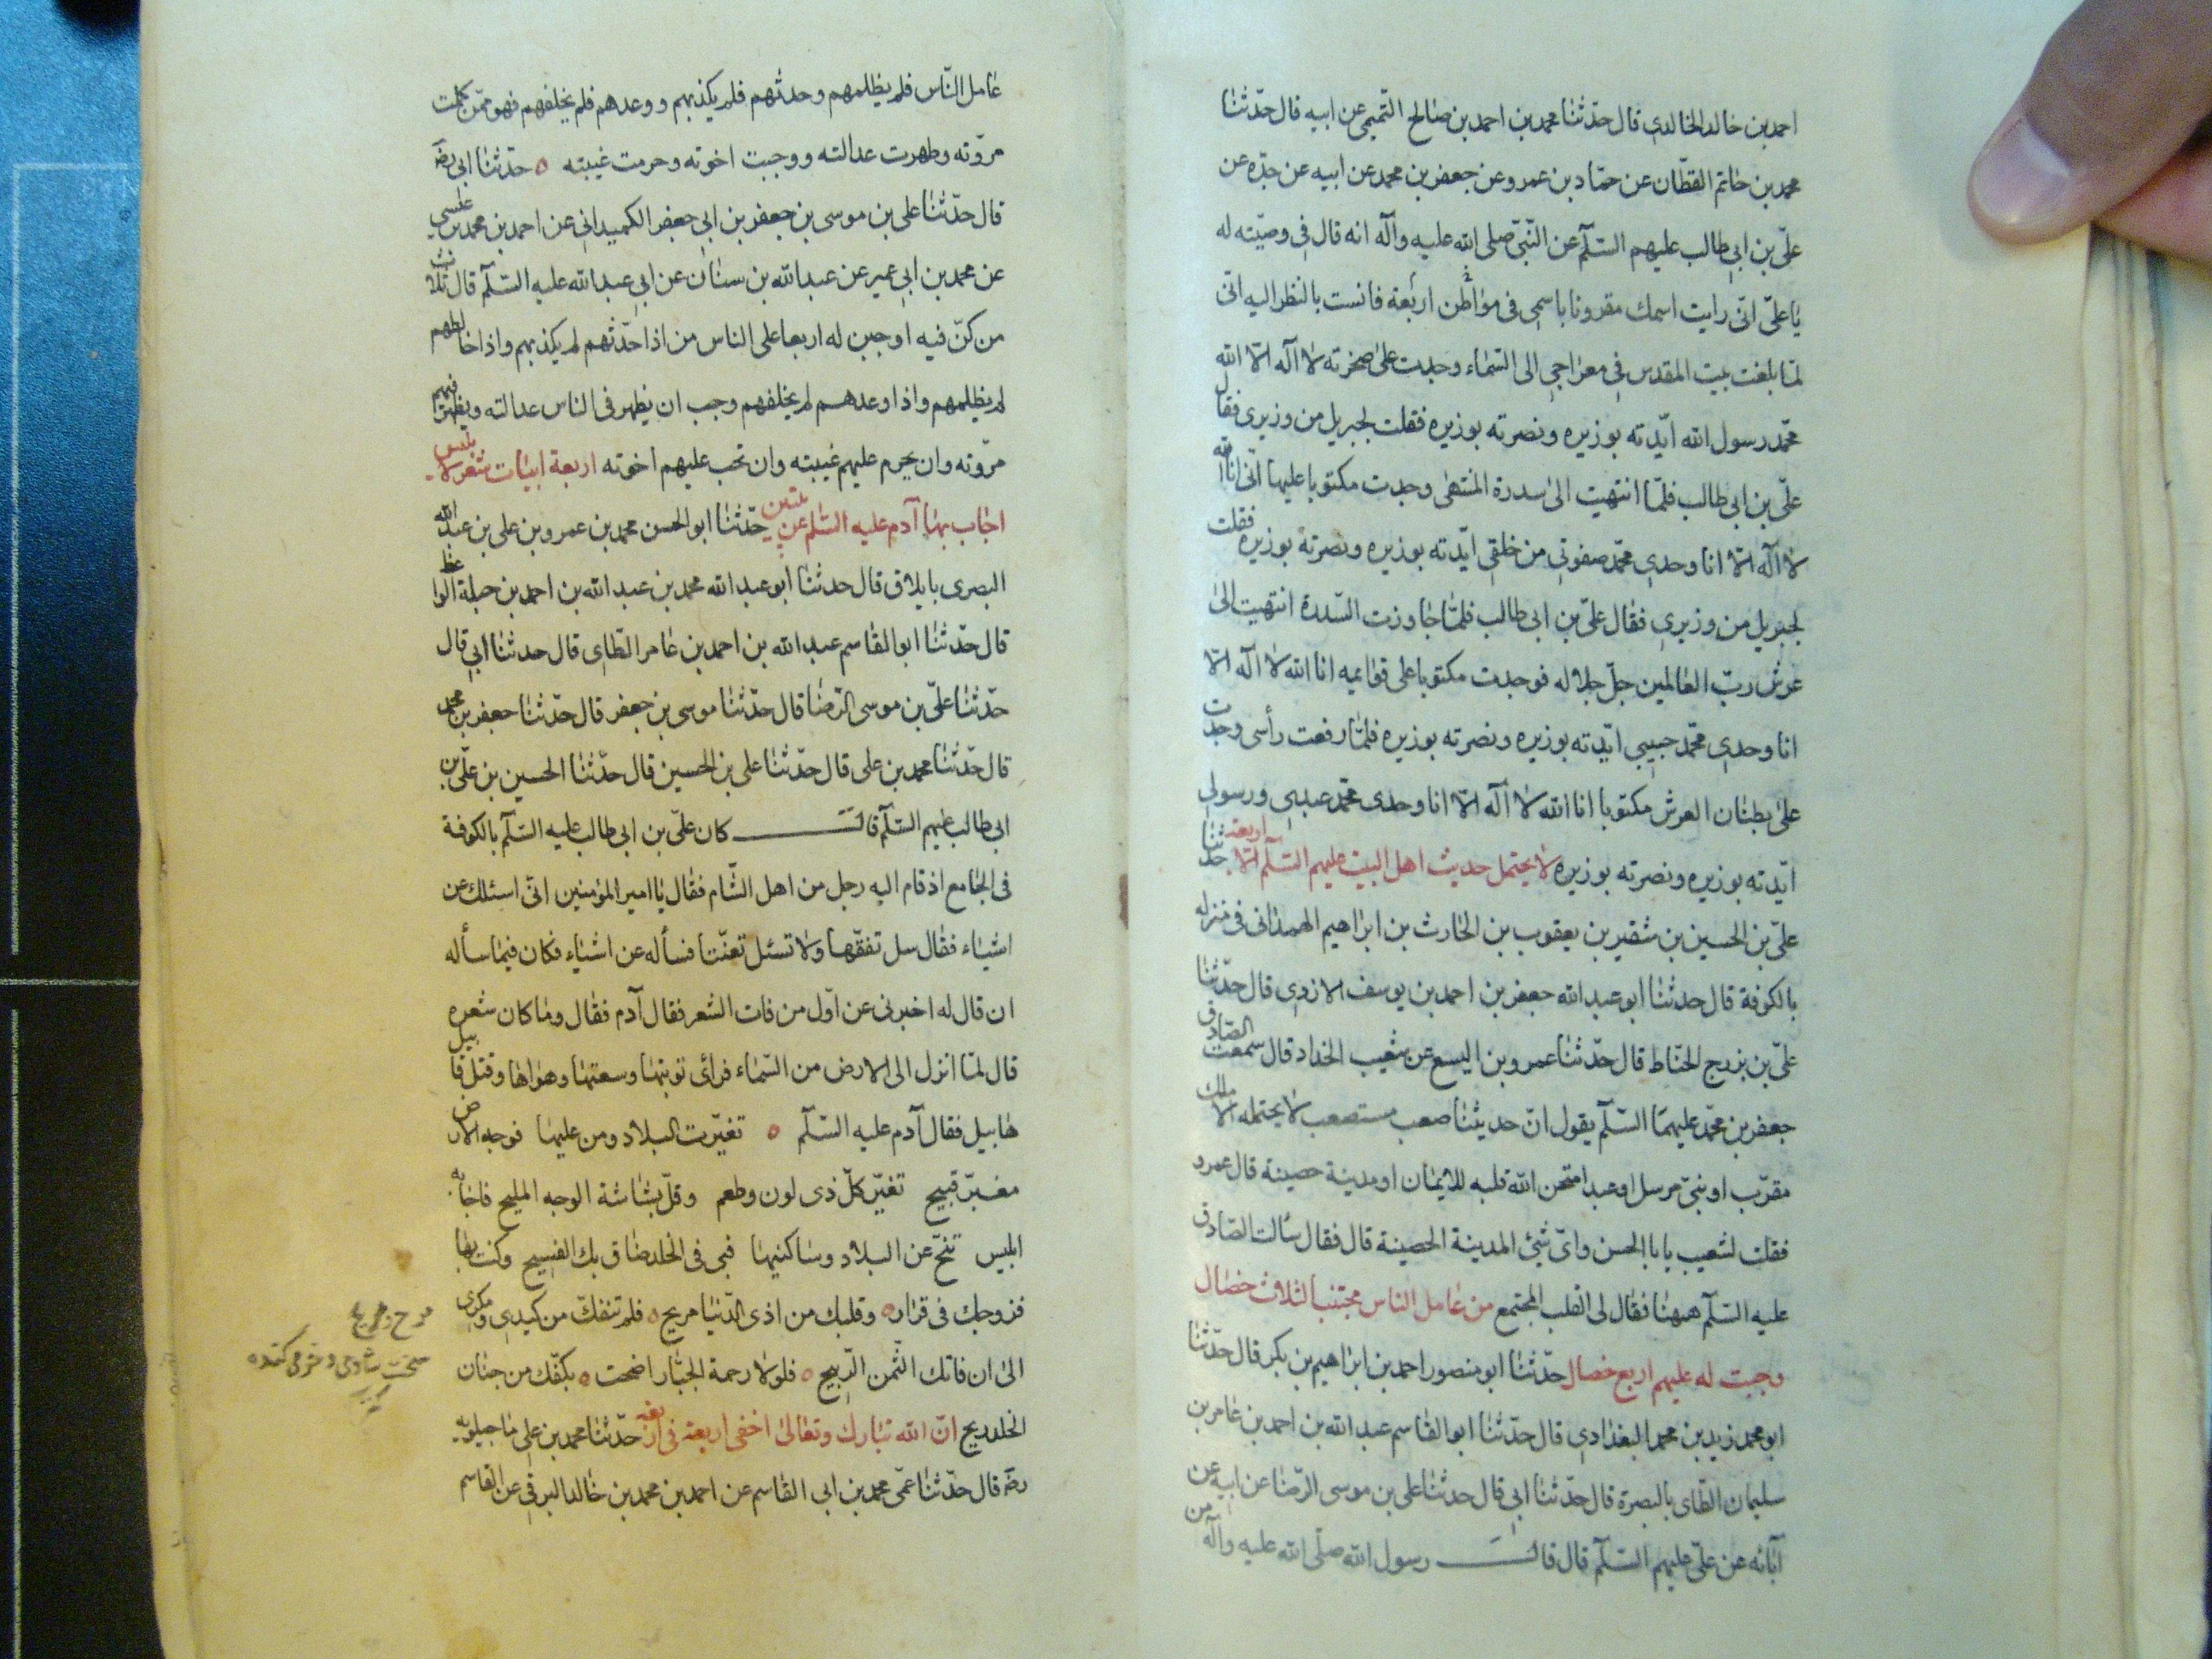 احمد بن خالد الخالدي قال حدّثنا محمد بن احمد بن صالح التّميمي عن ابيه قال حدّثنا
محمد بن حاتم القطّان عن حمّاد بن عمرو عن جعفر بن محمد عن ابيه عن جدّه عن
علىّ بن ابي طالب عليهم السّلم عن النّبىّ صلى الله عليه وآله انه قال فى وصيّته له
يا علىّ انّى رايت اسمك مقرونا باسمى فى مواطن اربعة فانست بالنظر اليه انّى
لمّا بلغت بيت المقدس في معراجي الى السّماء وجدت على صخرته لا اله الّا الله
محمّد رسول الله ايّدته بوزيره ونصرته بوزيره فقلت لجبريل من وزيرى فقال
علىّ بن ابى طالب فلمّا انتهيت الى سدرة المنتهى وجدت مكتوبا عليها انّى انا الله
لا اله الّا انا وحدي محمّد صفوتي من خلقي ايّدته بوزيره ونصرته بوزيره فقلت
لجبريل من وزيري فقال علىّ بن ابى طالب فلمّا جاوزت السّدرة انتهيت الى
عرش ربّ العالمين جلّ جلاله فوجدت مكتوبا على قوائمه انا الله لا اله الّا
انا وحدي محمّد حبيبي ايّدته بوزيره ونصرته بوزيره فلمّا رفعت رأسى وجدت
على بطنان العرش مكتوبا انا الله لا اله الّا انا وحدى محمّد عبدى ورسولى
ايّدته بوزيره ونصرته بوزيره لا يحتمل حديث اهل البيت عليهم السّلم الّا اربعة حدثنا
علىّ بن الحسين بن شقير بن يعقوب بن الحارث بن ابراهيم الهمداني فى منزله
بالكوفة قال حدثنا ابو عبد الله جعفر بن احمد بن يوسف الازدى قال حدّثنا
علىّ بن بزرج الحنّاط قال حدّثنا عمرو بن اليسع عن شعيب الحداد قال سمعت الصّادق
جعفر بن محمّد عليهما السّلم يقول انّ حديثنا صعب مستصعب لا يحتمله الّا ملك
مقرّب او نبىّ مرسل او عبد امتحن الله قلبه للايمان او مدينة حصينة قال عمرو
فقلت لشعيب يا با الحسن واىّ شئ المدينة الحصينة قال فقال سألت الصّادق
عليه السّلم عنها فقال لى القلب المجتمع من عامل الناس مجتنبا لثلاث خصال
وجبت له عليهم اربع خصال حدّثنا ابو منصور احمد بن ابراهيم بن بكر قال حدّثنا
ابو محمد زيد بن محمد البغدادي قال حدّثنا ابو القاسم عبد الله بن احمد بن عامر بن
سليمان الطّاى بالبصرة قال حدّثنا ابى قال حدثنا على بن موسى الرّضا عن ابيه عن
آبائه عن علىّ عليهم السّلم قال قال رسول الله صلّى الله عليه وآله من
عامل النّاس فلم يظلمهم وحدثهم فلم يكذبهم ووعدهم فلم يخلفهم فهو ممّن كملت
مروّته وظهرت عدالته ووجبت اخوته وحرمت غيبته ه حدّثنا ابى رضه
قال حدّثنا على بن موسى بن جعفر بن ابى جعفر الكميدانى عن احمد بن محمد بن عيسى
عن محمد بن ابى عمير عن عبد الله بن سنان عن ابى عبد الله عليه السّلم قال ثلاث
من كنّ فيه اوجبن له اربعا على الناس من اذا حدّثهم لم يكذبهم واذا خالطهم
لم يظلمهم واذا وعدهم لم يخلفهم وجب ان يظهر فى الناس عدالته ويظهر فيهم
مروّته وان يحرم عليهم غيبته وان تجب عليهم اخوته اربعة ابيات شعر لابليس
اجاب بها آدم عليه السّلم عن بيتين حدّثنا ابو الحسن محمد بن عمرو بن على بن عبد الله
البصرى بايلاق قال حدثنا ابو عبد الله محمد بن عبد الله بن احمد بن جبلة الواعظ
قال حدّثنا ابو القاسم عبد الله بن احمد بن عامر الطّاى قال حدثنا ابى قال
حدّثنا علىّ بن موسى الرّضا قال حدّثنا موسى بن جعفر قال حدّثنا جعفر بن محمد
قال حدّثنا محمد بن على قال حدّثنا على بن الحسين قال حدّثنا الحسين بن علىّ بن
ابى طالب عليهم السّلم قال كان علىّ بن ابى طالب عليه السّلم بالكوفة
فى الجامع اذ قام اليه رجل من اهل الشّام فقال يا امير المؤمنين انّى اسئلك عن
اشياء فقال سل تفقّها ولا تسئل تعنّتا فسأله عن اشياء فكان فيما سأله
ان قال له اخبرنى عن اوّل من قات الشعر فقال آدم فقال وما كان شعره
قال لمّا انزل الى الارض من السّماء فرأى تربتها وسعتها وهواها وقتل قابيل
هابيل فقال آدم عليه السّلم ه تغيّرت البلاد ومن عليها فوجه الارض
مغبرّ قبيح تغيّر كلّ ذى لون وطعم وقلّ بشاشة الوجه المليح فاجابه
ابليس تنحّ عن البلاد وساكنيها فبى فى الخلد ضاق بك الفسيح وكنت بها
وزوجك فى قرار ه وقلبك من اذى الدّنيا مريح ه فلم تنفكّ من كيدى ومكرى
الى ان فاتك الثّمن الرّبيح ه فلولا رحمة الجبّار اضحت ه بكفّك من جنان
الخلد ريح انّ الله تبارك وتعالى اخفى اربعة فى اربعة حدّثنا محمد بن على ماجيلويه
رضه قال حدّثنا عمّى محمد بن ابى القاسم عن احمد بن محمد بن خالد البرقى عن القاسم